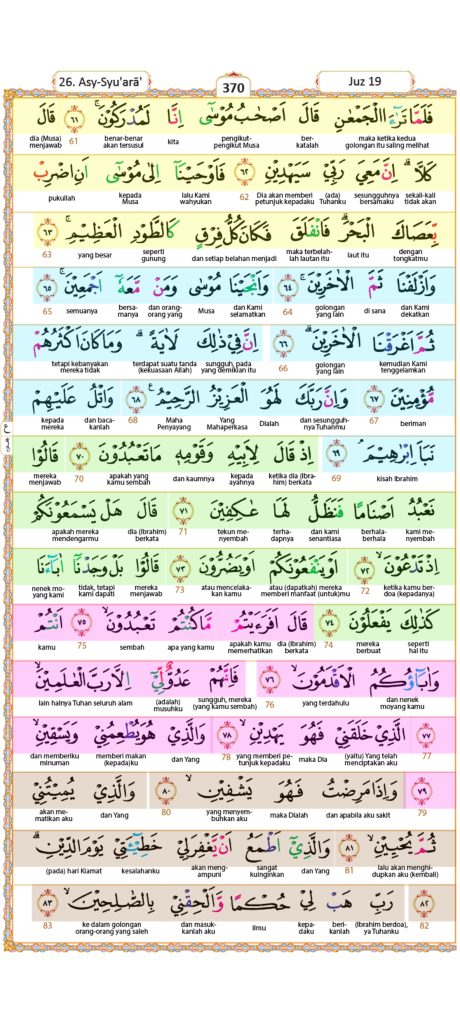 26. Asy-Syu'arā'
370
Juz 19
فَلَمَّا تَرَاۤءَ الْجَمْعٰنِ قَالَ اَصْحٰبُ مُوْسٰٓى اِنَّا لَمُدْرَكُوْنَ ۚ ٦١ قَالَ
maka ketika kedua golongan itu saling melihat berkatalah pengikut-pengikut Musa kita benar-benar akan tersusul 61 dia (Musa) menjawab
كَلَّاۚ اِنَّ مَعِيَ رَبِّيْ سَيَهْدِيْنِ ٦٢ فَاَوْحَيْنَآ اِلٰى مُوْسٰٓى اَنِ اضْرِبْ
sekali-kali tidak akan sesungguhnya bersamaku (ada) Tuhanku Dia akan memberi petunjuk kepadaku 62 lalu Kami wahyukan kepada Musa pukullah
بِّعَصَاكَ الْبَحْرَۗ فَانْفَلَقَ فَكَانَ كُلُّ فِرْقٍ كَالطَّوْدِ الْعَظِيْمِ ۚ ٦٣
dengan tongkatmu laut itu maka terbelah-lah lautan itu dan setiap belahan menjadi seperti gunung yang besar 63
وَاَزْلَفْنَا ثَمَّ الْاٰخَرِيْنَ ۚ ٦٤ وَاَنْجَيْنَا مُوْسٰى وَمَنْ مَّعَهٗٓ اَجْمَعِيْنَ ۚ ٦٥
dan Kami dekatkan di sana golongan yang lain 64 dan Kami selamatkan Musa dan orang-orang yang bersa-manya semuanya 65
ثُمَّ اَغْرَقْنَا الْاٰخَرِيْنَ ۗ ٦٦ اِنَّ فِيْ ذٰلِكَ لَاٰيَةً ۗ وَمَا كَانَ اَكْثَرُهُمْ
kemudian Kami tenggelamkan golongan yang lain 66 sungguh, pada yang demikian itu terdapat suatu tanda (kekuasaan Allah) tetapi kebanyakan mereka tidak
مُّؤْمِنِيْنَ ٦٧ وَاِنَّ رَبَّكَ لَهُوَ الْعَزِيْزُ الرَّحِيْمُ ࣖ ٦٨ وَاتْلُ عَلَيْهِمْ
beriman 67 dan sesunggguh-nya Tuhanmu Dialah Mahaperkasa Maha Penyayang 68 dan baca-kanlah kepada mereka
نَبَاَ اِبْرٰهِيْمَ ۘ ٦٩ اِذْ قَالَ لِاَبِيْهِ وَقَوْمِهٖ مَا تَعْبُدُوْنَ ٧٠ قَالُوْا
kisah Ibrahim 69 ketika dia (Ibra-him) berkata kepada ayahnya dan kaumnya apakah yang kamu sembah 70 mereka menjawab
نَعْبُدُ اَصْنَامًا فَنَظَلُّ لَهَا عٰكِفِيْنَ ٧١ قَالَ هَلْ يَسْمَعُوْنَكُمْ
kami me-nyembah berhala-berhala dan kami senantiasa terha-dapnya tekun me-nyembah 71 dia (Ibrahim) berkata apakah mereka mendengarmu
اِذْ تَدْعُوْنَ ۙ ٧٢ اَوْ يَنْفَعُوْنَكُمْ اَوْ يَضُرُّوْنَ ٧٣ قَالُوْا بَلْ وَجَدْنَآ اٰبَاۤءَنَا
ketika kamu ber-doa (kepadanya) 72 atau (dapatkah) mereka memberi manfaat (untuk)mu atau mencelaka-kan kamu 73 mereka menjawab tidak, tetapi kami dapati nenek mo-yang kami
كَذٰلِكَ يَفْعَلُوْنَ ٧٤ قَالَ اَفَرَءَيْتُمْ مَّا كُنْتُمْ تَعْبُدُوْنَ ۙ ٧٥ اَنْتُمْ
seperti hal itu mereka berbuat 74 dia (Ibrahim) berkata apakah kamu memerhatikan apa yang kamu sembah 75 kamu
وَاٰبَاۤؤُكُمُ الْاَقْدَمُوْنَ ۙ ٧٦ فَاِنَّهُمْ عَدُوٌّ لِّيْٓ اِلَّا رَبَّ الْعٰلَمِيْنَ ۙ
dan nenek moyang kamu yang terdahulu 76 sungguh, mereka (yang kamu sembah) (adalah) musuhku lain halnya Tuhan seluruh alam
٧٧ الَّذِيْ خَلَقَنِيْ فَهُوَ يَهْدِيْنِ ۙ ٧٨ وَالَّذِيْ هُوَ يُطْعِمُنِيْ وَيَسْقِيْنِ ۙ
77 (yaitu) Yang telah menciptakan aku maka Dia yang memberi pe-tunjuk kepadaku 78 dan Yang memberi makan (kepada)ku dan memberiku minuman
٧٩ وَاِذَا مَرِضْتُ فَهُوَ يَشْفِيْنِ ۙ ٨٠ وَالَّذِيْ يُمِيْتُنِيْ
79 dan apabila aku sakit maka Dialah yang menyem-buhkan aku 80 dan Yang akan me-matikan aku
ثُمَّ يُحْيِيْنِ ۙ ٨١ وَالَّذِيْٓ اَطْمَعُ اَنْ يَّغْفِرَ لِيْ خَطِيْۤـَٔتِيْ يَوْمَ الدِّيْنِ ۗ
lalu akan menghi-dupkan aku (kembali) 81 dan Yang sangat kuinginkan akan meng-ampuni kesalahanku (pada) hari Kiamat
٨٢ رَبِّ هَبْ لِيْ حُكْمًا وَّاَلْحِقْنِيْ بِالصّٰلِحِيْنَ ۙ ٨٣
82 (Ibrahim berdoa), ya Tuhanku beri-kanlah kepa-daku ilmu dan masuk-kanlah aku ke dalam golongan orang-orang yang saleh 83